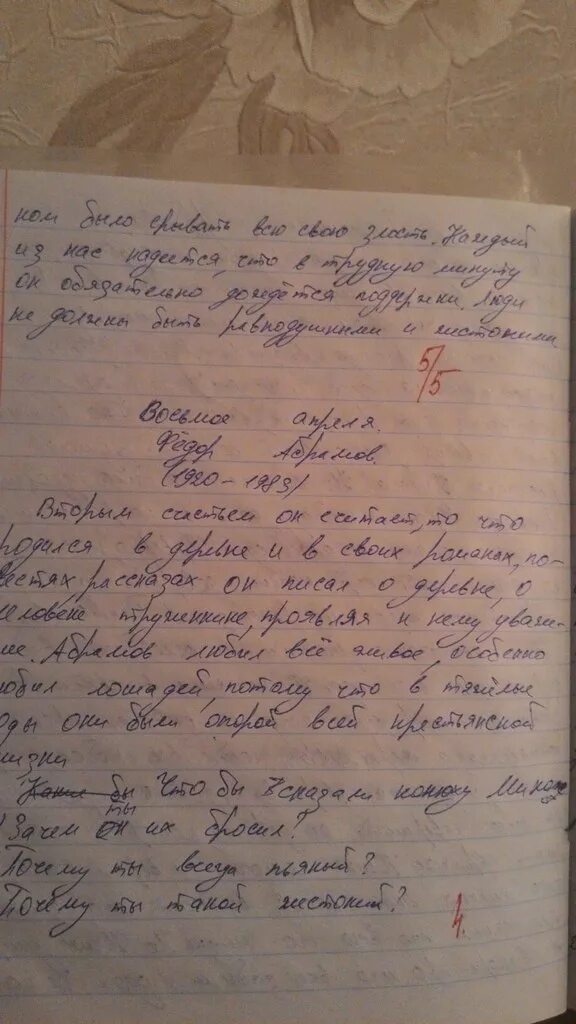 ком было срывать всю свою злость. Каждый
из нас надеется, что в трудную минуту
он обязательно дождётся поддержки. Люди
не должны быть равнодушными и жестокими
5/5
Восьмое апреля.
Фёдор Абрамов.
(1920-1983)
Вторым счастьем он считает, то что
родился в деревне и в своих романах, по-
естях, рассказах он писал о деревне, о
человеке труженнике, проявляя к нему уваже-
ие. Абрамов любил всё живое, особенно
юбил лошадей, потому что в тяжёлые
оды они были опорой всей крестьянской
изни
Какие бы Что бы я сказала конюху Миколе
ты
Зачем он их бросил?
Почему ты всегда пьяный?
Почему ты такой жестокий?
4.